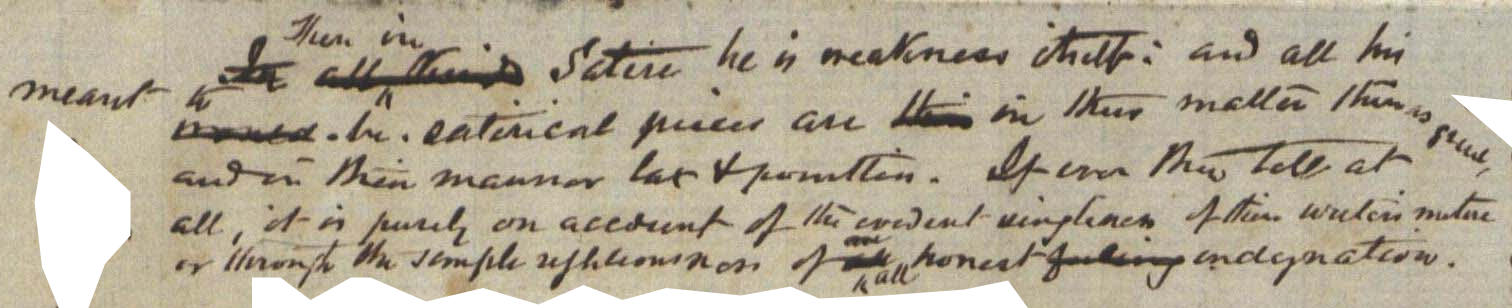 Then in
In all this Satire he is weakness itself: and all his
meant to
be satirical pieces are in their matter
and in their manner lax & pointless. If ever they tell at
all, it is purely on account of the evident singleness of their writer's nature
or through the simple righteousness of an all honest feeling indignation.